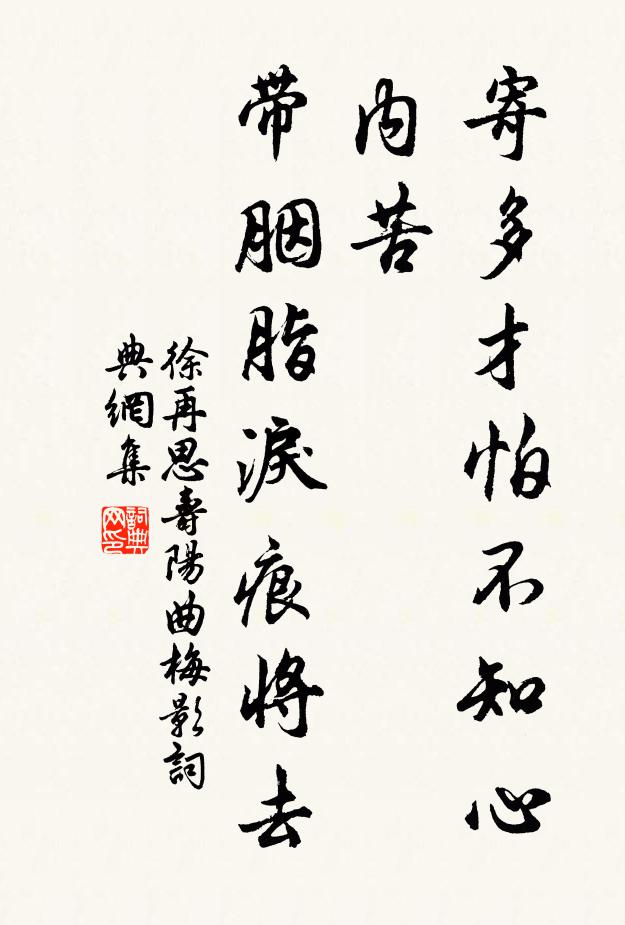 寄多才怕不知心
内苦
带胭脂淚痕将去
徐再思壽陽曲梅影詞
典網集
詞典网印